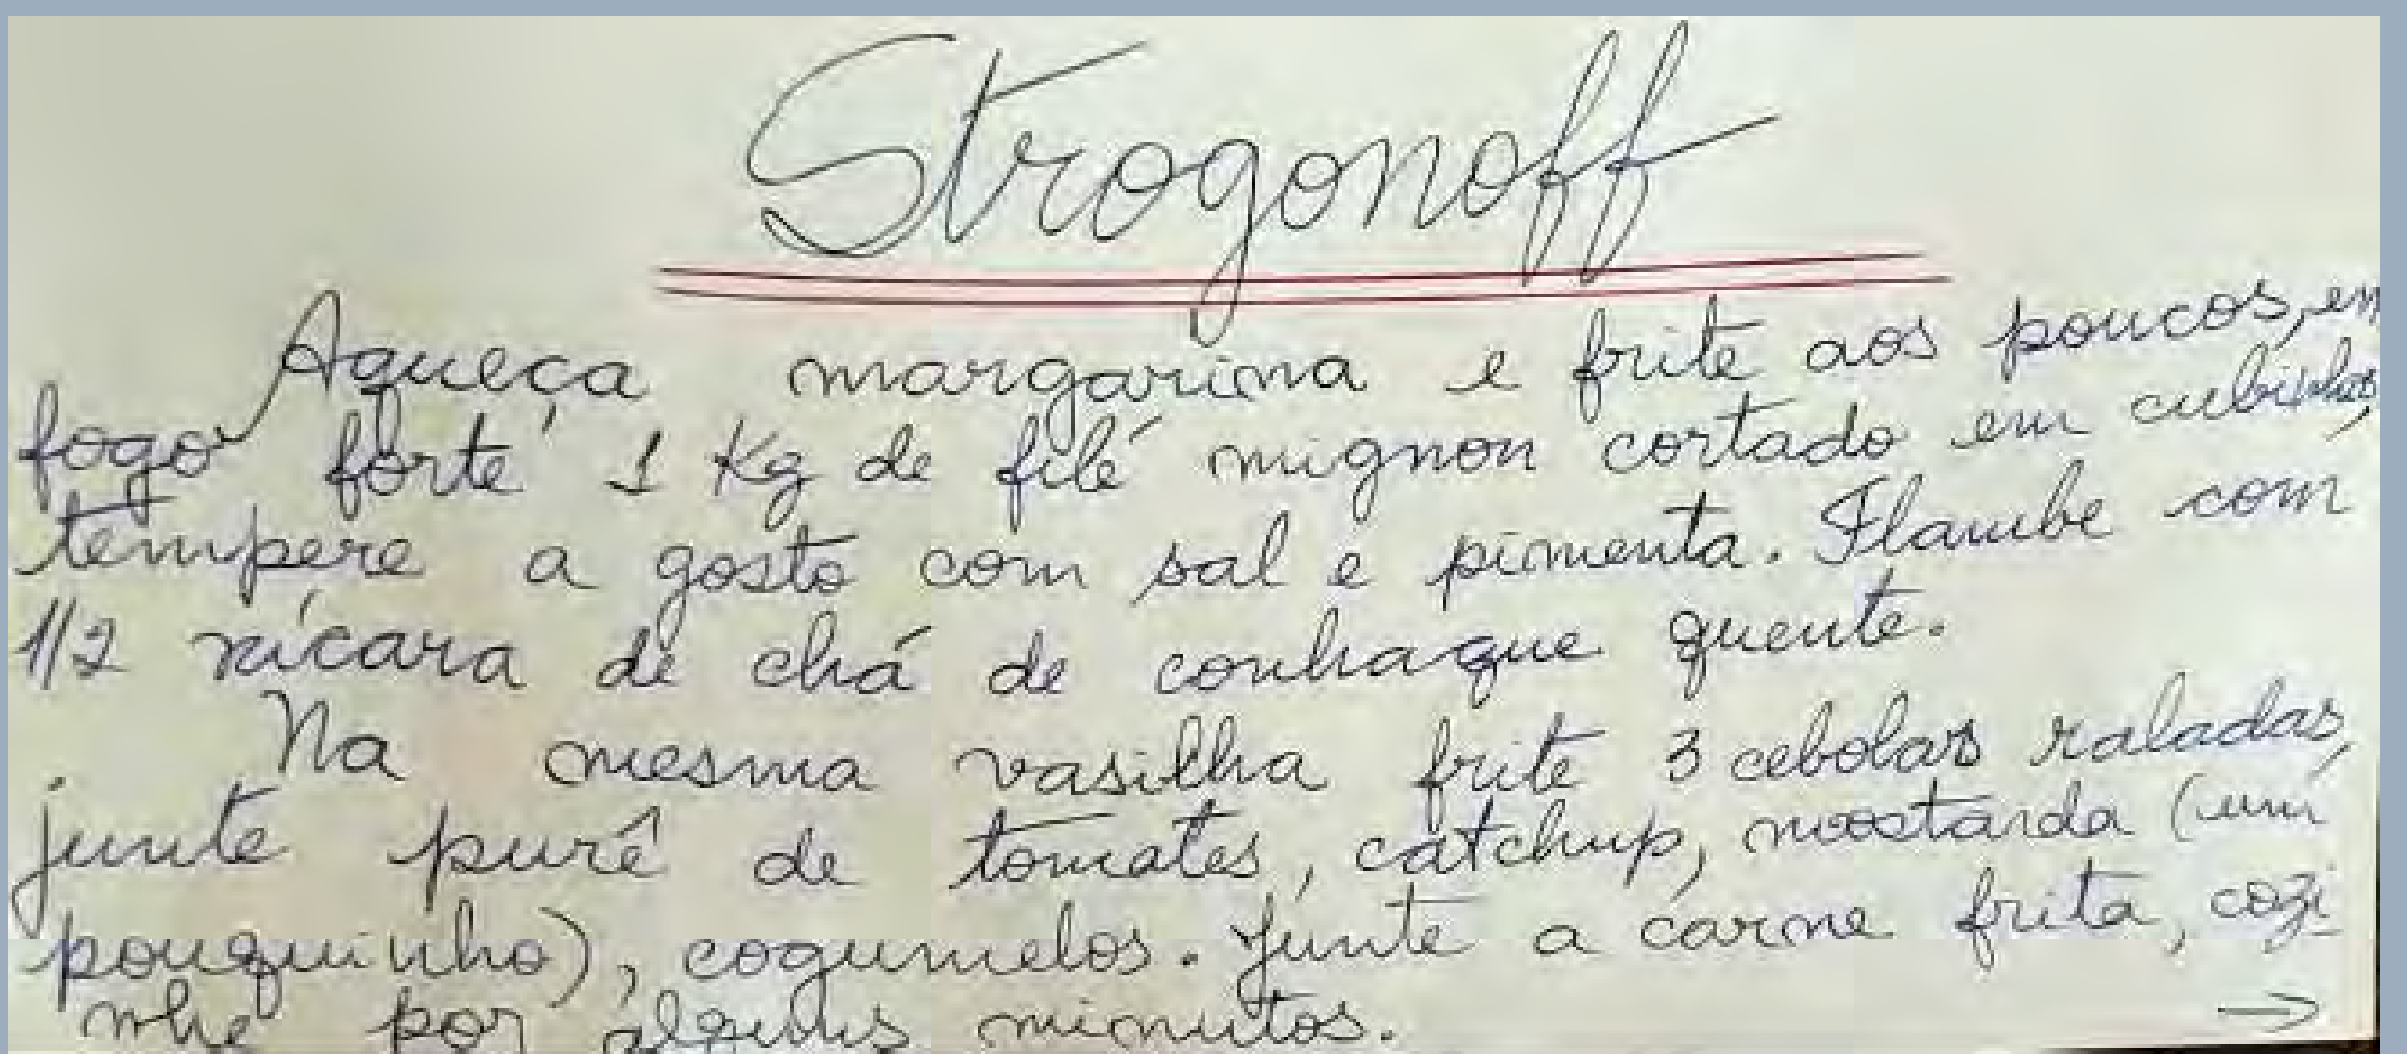 Strogonoff
Aqueça margarina e frite aos poucos, em
fogo forte 1 Kg de filé mignon cortado em cubinhos,
tempere a gosto com sal e pimenta. Flambe com
1/2 xícara de chá de conhaque quente.
Na mesma vasilha frite 3 cebolas raladas,
junte purê de tomates, catchup, mostarda (um
pouquinho), cogumelos. Junte a carne frita, cozi
nhe por alguns minutos. →